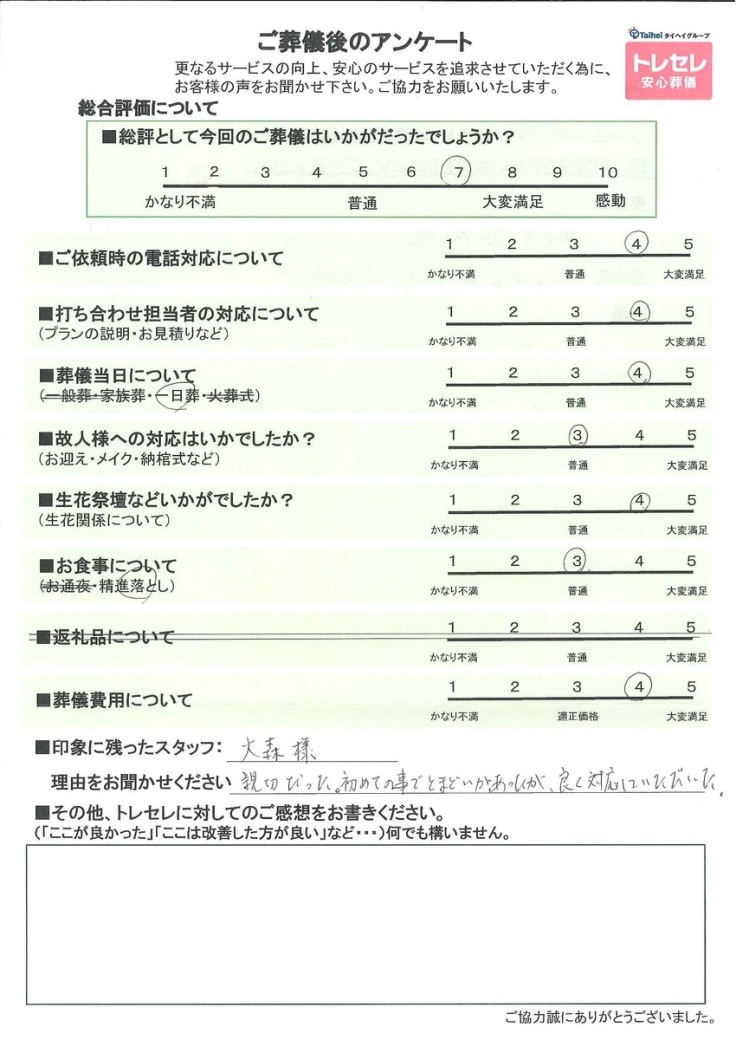 ご葬儀後のアンケート
Taihei タイヘイグループ
トレセレ
安心葬儀
更なるサービスの向上、安心のサービスを追求させていただく為に、
お客様の声をお聞かせ下さい。ご協力をお願いいたします。
総合評価について
■総評として今回のご葬儀はいかがだったでしょうか？
1 2 3 4 5 6 7 8 9 10
かなり不満 普通 大変満足 感動
■ご依頼時の電話対応について
1 2 3 4 5
かなり不満 普通 大変満足
■打ち合わせ担当者の対応について
(プランの説明・お見積りなど)
1 2 3 4 5
かなり不満 普通 大変満足
■葬儀当日について
(一般葬・家族葬・一日葬・火葬式)
1 2 3 4 5
かなり不満 普通 大変満足
■故人様への対応はいかでしたか？
(お迎え・メイク・納棺式など)
1 2 3 4 5
かなり不満 普通 大変満足
■生花祭壇などいかがでしたか？
(生花関係について)
1 2 3 4 5
かなり不満 普通 大変満足
■お食事について
(お通夜・精進落とし)
1 2 3 4 5
かなり不満 普通 大変満足
■返礼品について
1 2 3 4 5
かなり不満 普通 大変満足
■葬儀費用について
1 2 3 4 5
かなり不満 適正価格 大変満足
■印象に残ったスタッフ： 大森様
理由をお聞かせください 親切だった。初めての事でとまどいがあったが、良く対応していただいた。
■その他、トレセレに対してのご感想をお書きください。
(「ここが良かった」「ここは改善した方が良い」など・・・)何でも構いません。
ご協力誠にありがとうございました。